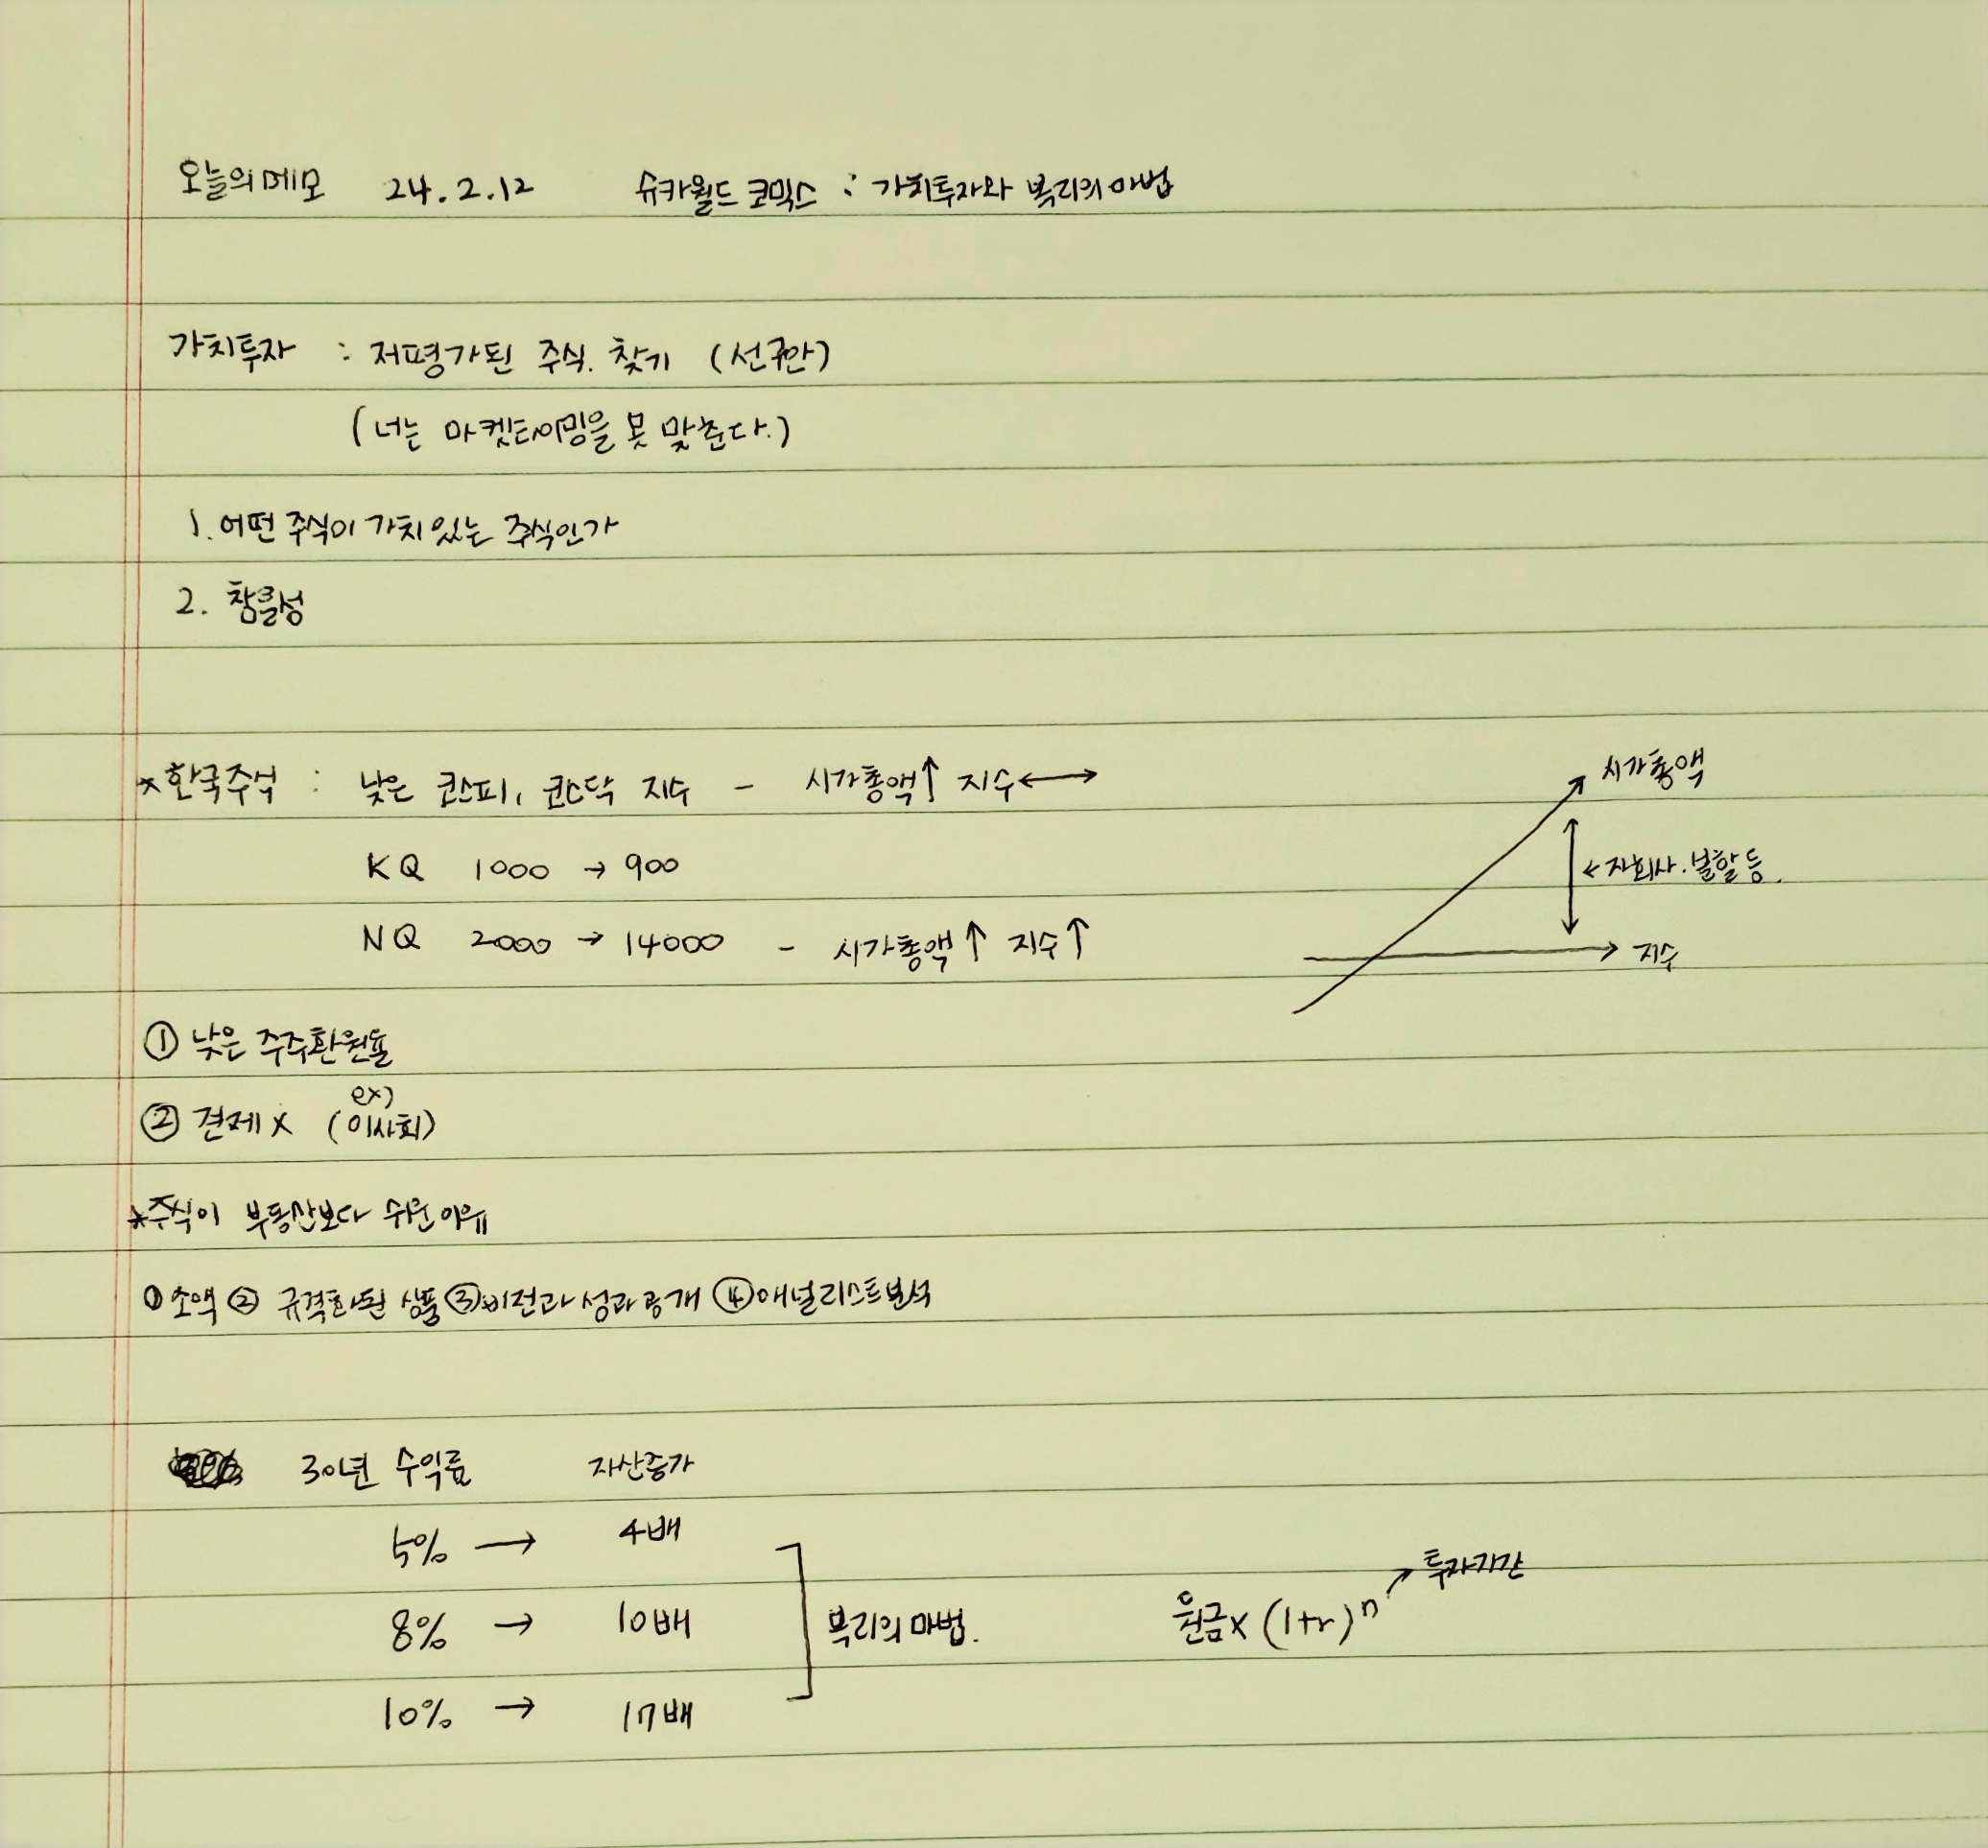 오늘의메모 24.2.12 슈카월드 코믹스 : 가치투자와 복리의 마법
가치투자 : 저평가된 주식. 찾기 (선구안)
(너는 마켓타이밍을 못 맞춘다.)
1. 어떤 주식이 가치있는 주식인가
2. 창의성
*한국주식 : 낮은 코스피, 코스닥 지수 - 시가총액↑ 지수↔
KQ 1000 → 900
NQ 2000 → 14000 - 시가총액↑ 지수↑
시가총액
←자회사.분할 등.
지수
① 낮은 주주환원율
② 견제 X (ex) 이사회)
*주식이 부동산보다 쉬운이유
①소액 ② 규격화된 상품 ③비전과 성과 공개 ④애널리스트 분석
30년 수익률 자산증가
5% → 4배
8% → 10배
10% → 17배
복리의 마법.
원금 x (1+r)ⁿ → 투자기간